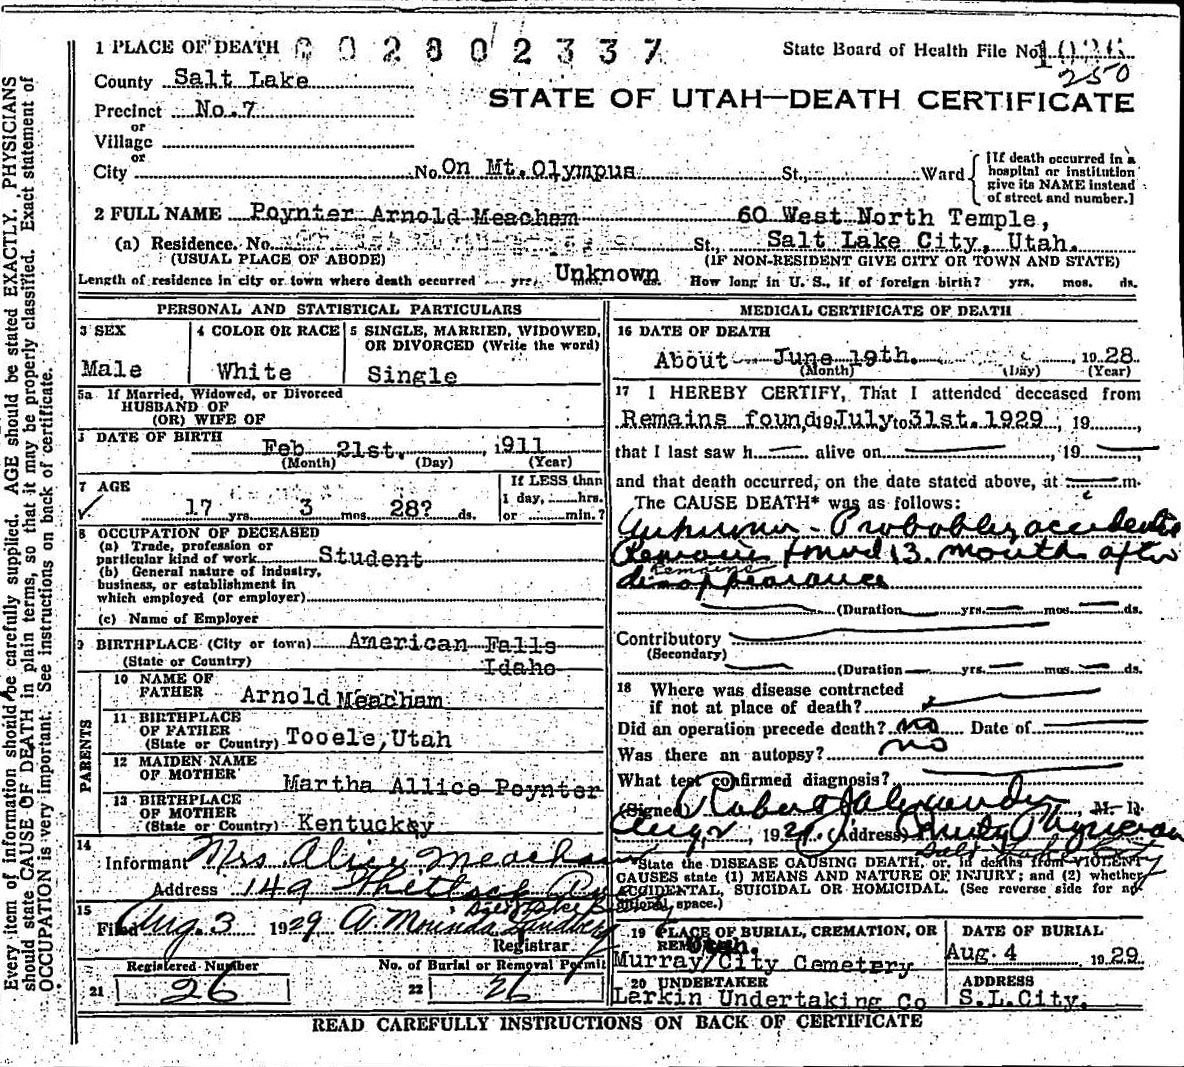 1 PLACE OF DEATH 002802337 State Board of Health File No. 1026
250
County Salt Lake
STATE OF UTAH—DEATH CERTIFICATE
Precinct No. 7
or
Village
or
City No. On Mt. Olympus St., Ward
[If death occurred in a
hospital or institution
give its NAME instead
of street and number.]
2 FULL NAME Poynter Arnold Meacham 60 West North Temple,
(a) Residence. No. St., Salt Lake City, Utah.
(USUAL PLACE OF ABODE) (IF NON-RESIDENT GIVE CITY OR TOWN AND STATE)
Length of residence in city or town where death occurred yrs. Unknown mos. ds. How long in U. S., if of foreign birth? yrs. mos. ds.
PERSONAL AND STATISTICAL PARTICULARS
3 SEX 4 COLOR OR RACE 5 SINGLE, MARRIED, WIDOWED,
OR DIVORCED (Write the word)
Male White Single
5a If Married, Widowed, or Divorced
HUSBAND OF
(OR) WIFE OF
DATE OF BIRTH Feb 21st. , 1911
(Month) (Day) (Year)
7 AGE If LESS than
1 day, hrs.
17 yrs. 3 mos. 28? ds. or min.?
8 OCCUPATION OF DECEASED
(a) Trade, profession or
particular kind of work Student
(b) General nature of industry,
business, or establishment in
which employed (or employer)
(c) Name of Employer
9 BIRTHPLACE (City or town) American Falls
(State or Country) Idaho
PARENTS
10 NAME OF
FATHER Arnold Meacham
11 BIRTHPLACE
OF FATHER
(State or Country) Tooele, Utah
12 MAIDEN NAME
OF MOTHER Martha Allice Poynter
13 BIRTHPLACE
OF MOTHER
(State or Country) Kentuckey
14
Informant Mrs Alice Meacham
Address 149
15
Filed Aug. 3 1929
Registrar
Registered Number No. of Burial or Removal Permit
21 26 22 26
MEDICAL CERTIFICATE OF DEATH
16 DATE OF DEATH
About June 19th. , 1928
(Month) (Day) (Year)
17 I HEREBY CERTIFY, That I attended deceased from
Remains found 19 July to 31st. 1929, 19
that I last saw h alive on , 19
and that death occurred, on the date stated above, at m.
The CAUSE DEATH* was as follows:
Unknown - Probably accidental
Remains found 13 months after
Remains
disappearance
(Duration yrs. mos. ds.
Contributory
(Secondary)
(Duration yrs. mos. ds.
18 Where was disease contracted
if not at place of death?
Did an operation precede death? no Date of
Was there an autopsy? no
What test confirmed diagnosis?
(Signed) Robert J Alexander M. D.
Aug 2, 1929 (Address) County Physician
Salt Lake City
*State the DISEASE CAUSING DEATH, or, in deaths from VIOLENT
CAUSES state (1) MEANS AND NATURE OF INJURY; and (2) whether
ACCIDENTAL, SUICIDAL OR HOMICIDAL. (See reverse side for ad-
ditional space.)
19 PLACE OF BURIAL, CREMATION, OR
REMOVAL Utah. DATE OF BURIAL
Murray City Cemetery Aug. 4 1929
20 UNDERTAKER ADDRESS
Larkin Undertaking Co S.L.City.
READ CAREFULLY INSTRUCTIONS ON BACK OF CERTIFICATE
Every item of information should be carefully supplied. AGE should be stated EXACTLY. PHYSICIANS
should state CAUSE OF DEATH in plain terms, so that it may be properly classified. Exact statement of
OCCUPATION is very important. See instructions on back of certificate.